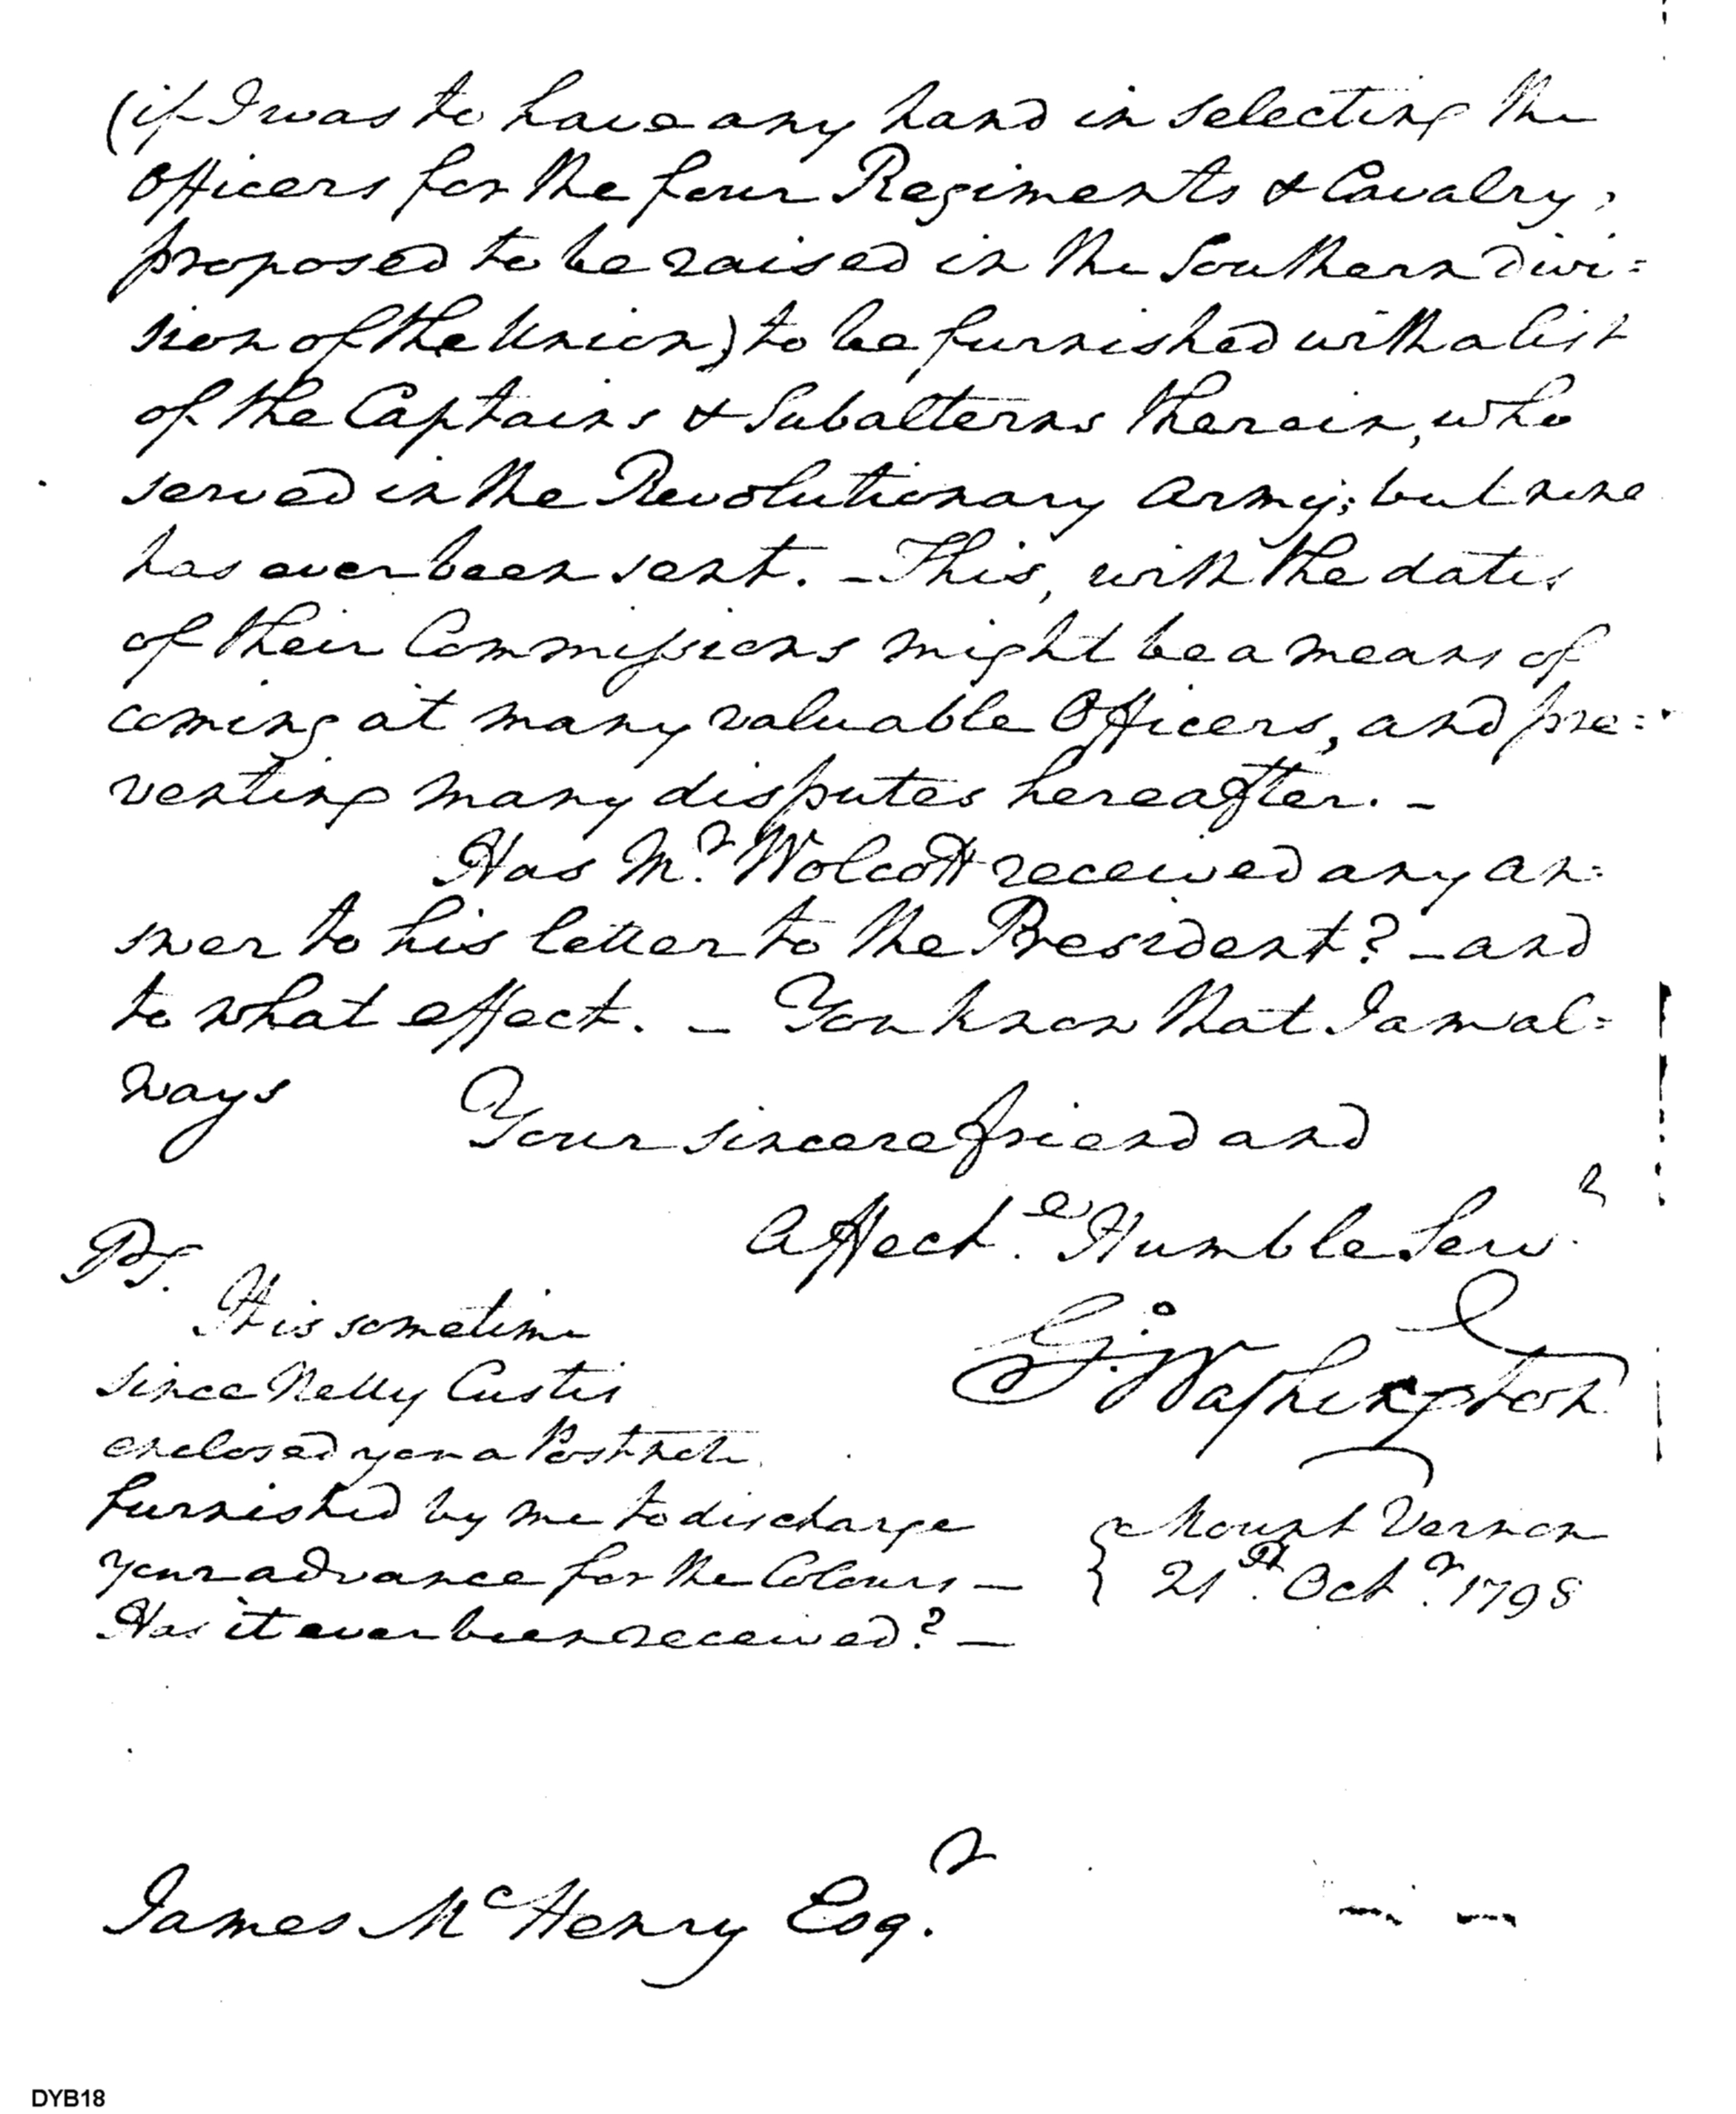 (if I was to have any hand in selecting the
Officers for the four Regiments & Cavalry,
proposed to be raised in the Southern Divi=
sion of the Union) to be furnished with a list
of the Captains & Subalterns therein, who
served in the Revolutionary Army; but none
has ever been sent. – This, with the dates
of their Commissions might be a means of
coming at many valuable Officers, and pre=
venting many disputes hereafter. –
Has Mr. Wolcott received any an=
swer to his letter to the President? – and
to what effect. – You know that I am al=
ways
Your sincere friend and
Affecte. Humble Servr.
Go. Washington
PS.
It is sometime
since Nelly Custis
enclosed you a Post note
furnished by me to discharge
your advance for the Colours –
Has it ever been received? –
Mount Vernon
21st. Octr. 1798
James McHenry Esqr.
DYB18